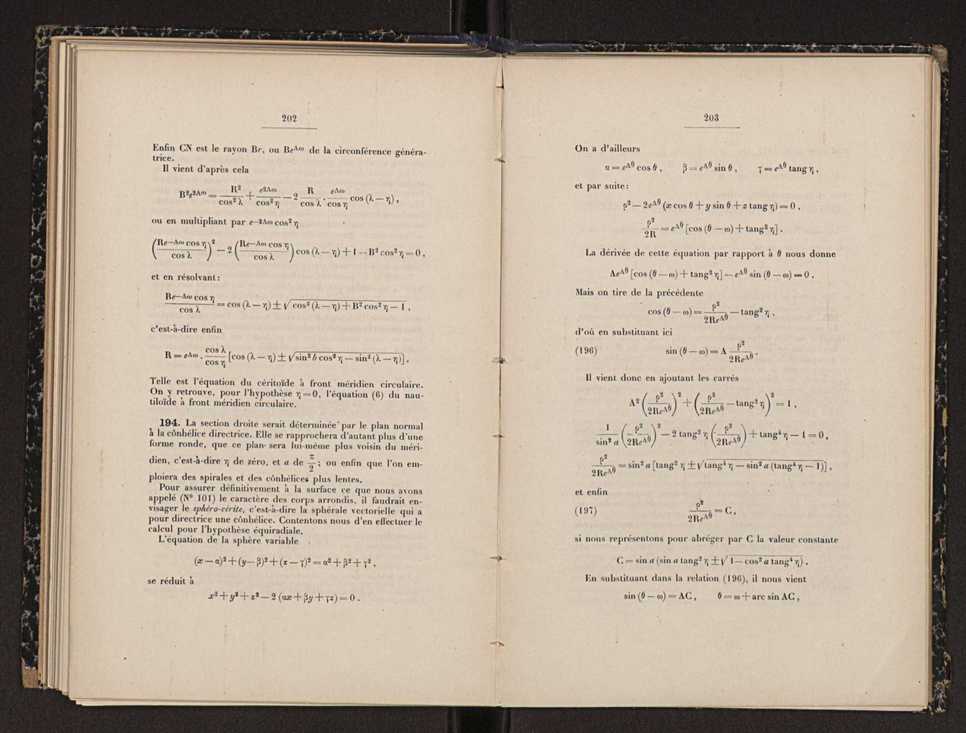 202
Enfin CN est le rayon Br, ou Be^{Aω} de la circonférence généra-
trice.
Il vient d'après cela
B²e^{2Aω} = R²/cos² λ + e^{2Aω}/cos² η — 2 R/cos λ · e^{Aω}/cos η cos (λ — η) ,
ou en multipliant par e^{—2Aω} cos² η
(Re^{—Aω} cos η / cos λ)² — 2 (Re^{—Aω} cos η / cos λ) cos (λ — η) + 1 — B² cos² η = 0 ,
et en résolvant :
Re^{—Aω} cos η / cos λ = cos (λ — η) ± √cos² (λ — η) + B² cos² η — 1 ,
c'est-à-dire enfin
R = e^{Aω} · cos λ / cos η [cos (λ — η) ± √sin² b cos² η — sin² (λ — η)] .
Telle est l'équation du céritoïde à front méridien circulaire.
On y retrouve, pour l'hypothèse η = 0, l'équation (6) du nau-
tiloïde à front méridien circulaire.
194. La section droite serait déterminée par le plan normal
à la cônhélice directrice. Elle se rapprochera d'autant plus d'une
forme ronde, que ce plan sera lui-même plus voisin du méri-
dien, c'est-à-dire η de zéro, et a de π/2 ; ou enfin que l'on em-
ploiera des spirales et des cônhélices plus lentes.
Pour assurer définitivement à la surface ce que nous avons
appelé (N° 101) le caractère des corps arrondis, il faudrait en-
visager le sphéro-cérite, c'est-à-dire la sphérale vectorielle qui a
pour directrice une cônhélice. Contentons nous d'en effectuer le
calcul pour l'hypothèse équiradiale.
L'équation de la sphère variable
(x — α)² + (y — β)² + (z — γ)² = α² + β² + γ² ,
se réduit à
x² + y² + z² — 2 (αx + βy + γz) = 0 .
203
On a d'ailleurs
α = e^{Aθ} cos θ , β = e^{Aθ} sin θ , γ = e^{Aθ} tang η ,
et par suite :
ρ² — 2e^{Aθ} (x cos θ + y sin θ + z tang η) = 0 ,
ρ²/2R = e^{Aθ} [cos (θ — ω) + tang² η] .
La dérivée de cette équation par rapport à θ nous donne
Ae^{Aθ} [cos (θ — ω) + tang² η] — e^{Aθ} sin (θ — ω) = 0 .
Mais on tire de la précédente
cos (θ — ω) = ρ²/2Re^{Aθ} — tang² η ,
d'où en substituant ici
(196) sin (θ — ω) = A ρ²/2Re^{Aθ} .
Il vient donc en ajoutant les carrés
A² (ρ²/2Re^{Aθ})² + (ρ²/2Re^{Aθ} — tang² η)² = 1 ,
1/sin² a (ρ²/2Re^{Aθ})² — 2 tang² η (ρ²/2Re^{Aθ}) + tang⁴ η — 1 = 0 ,
ρ²/2Re^{Aθ} = sin² a [tang² η ± √tang⁴ η — sin² a (tang⁴ η — 1)] ,
et enfin
(197) ρ²/2Re^{Aθ} = C ,
si nous représentons pour abréger par C la valeur constante
C = sin a (sin a tang² η ± √1 — cos² a tang⁴ η) .
En substituant dans la relation (196), il nous vient
sin (θ — ω) = AC , θ = ω + arc sin AC ,